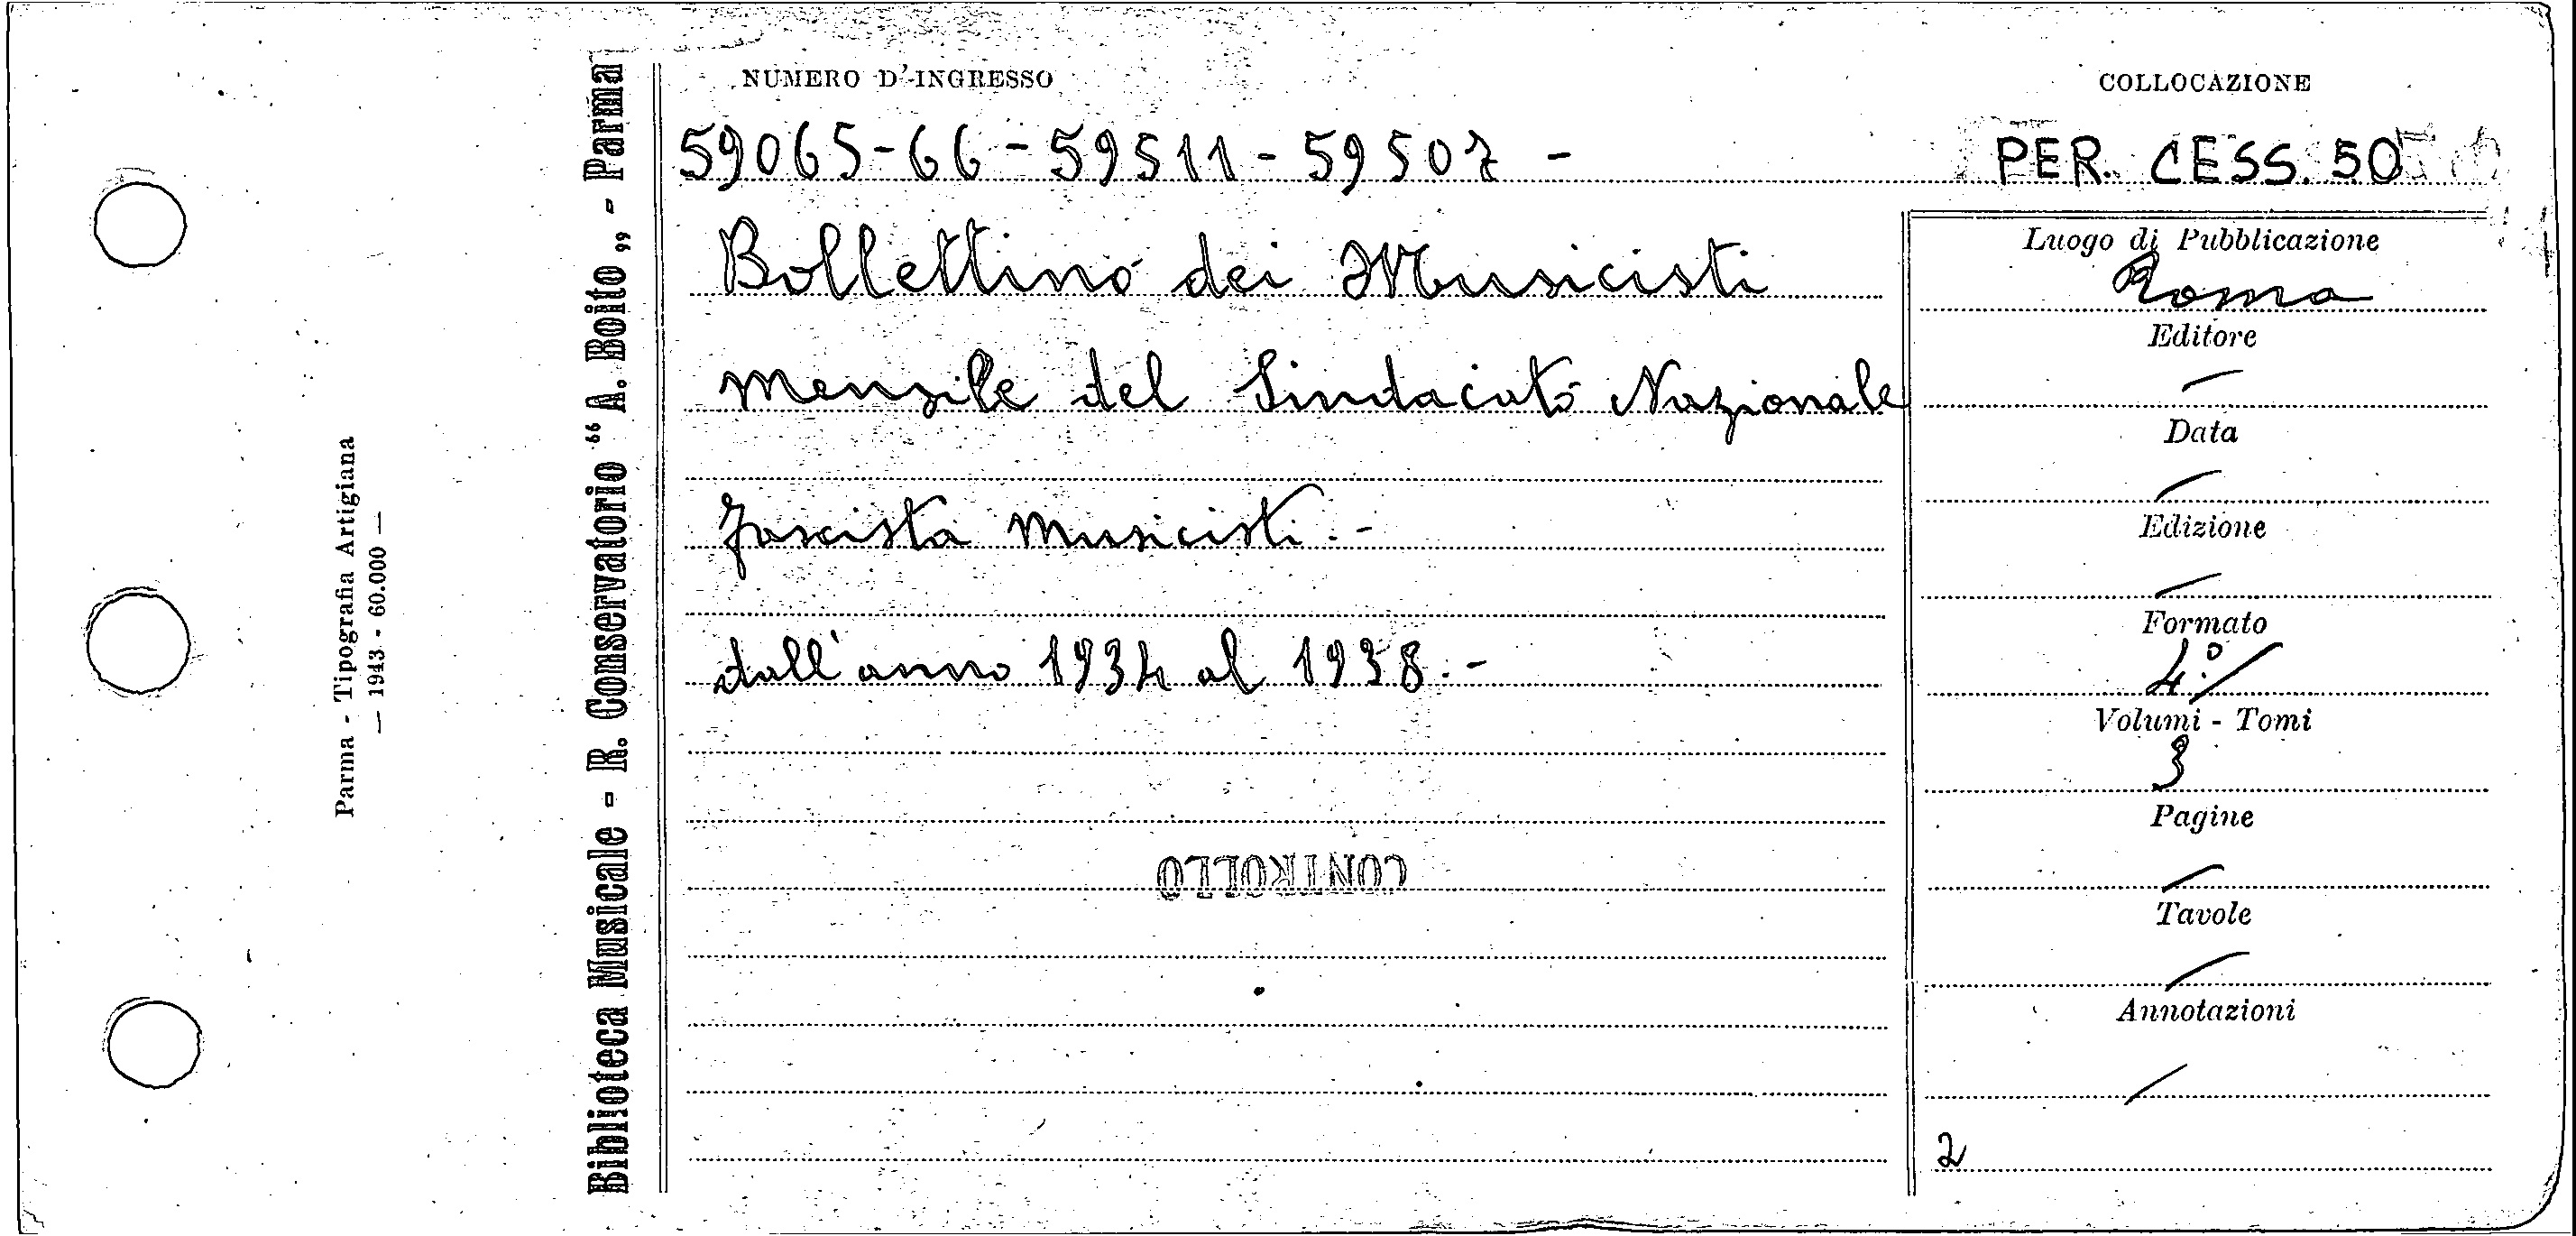 NUMERO D'INGRESSO
COLLOCAZIONE
59065-66-59511-59507 -
PER. CESS. 50
Bollettino dei Musicisti
mensile del Sindacato Nazionale
fascista musicisti.-
dall'anno 1934 al 1938.-
CONTROLLO
Luogo di Pubblicazione
Roma
Editore
Data
Edizione
Formato
4º
Volumi - Tomi
3
Pagine
Tavole
Annotazioni
2
Biblioteca Musicale - R. Conservatorio “A. Boito„ - Parma
Parma - Tipografia Artigiana
— 1943 - 60.000 —